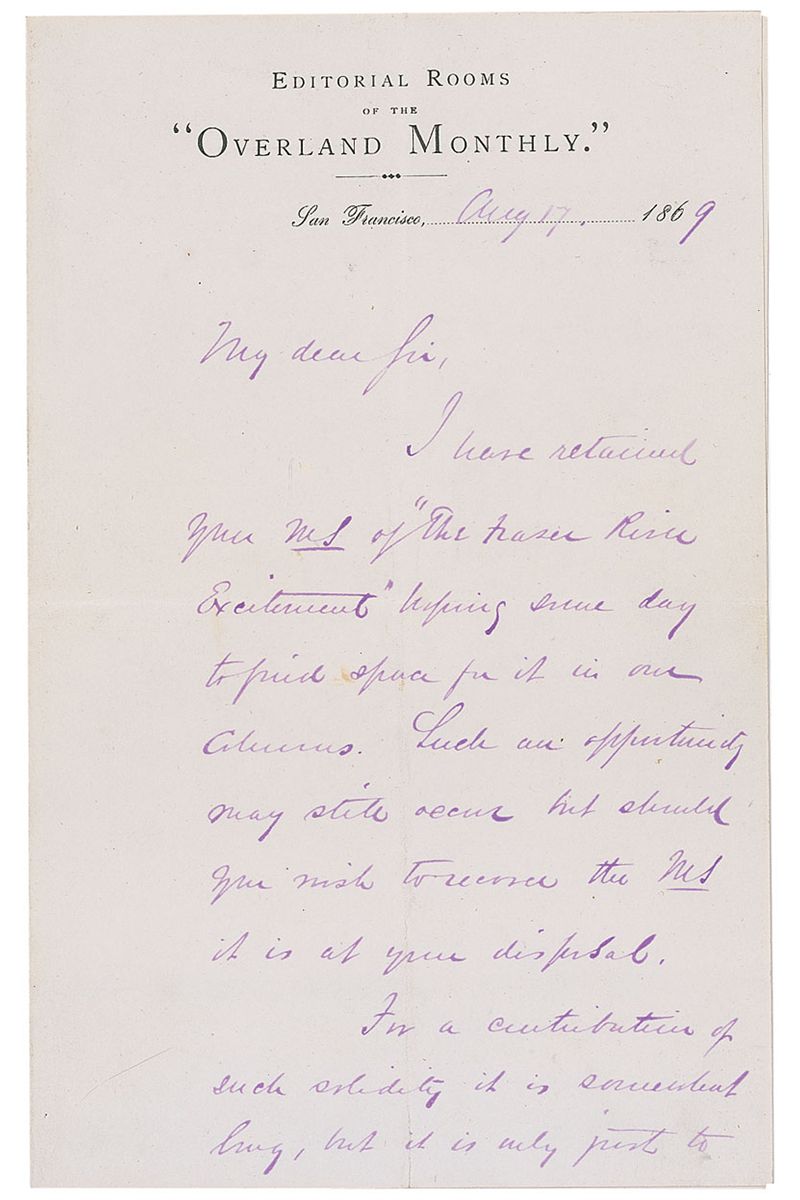 EDITORIAL ROOMS
OF THE
“OVERLAND MONTHLY.”
San Francisco, Aug 17, 1869
My dear Sir,
I have retained
your MS of "The Fraser River
Excitement" hoping some day
to find space for it in our
columns. Such an opportunity
may still occur but should
you wish to recover the MS
it is at your disposal.
For a contribution of
such solidity it is somewhat
long, but it is only just to